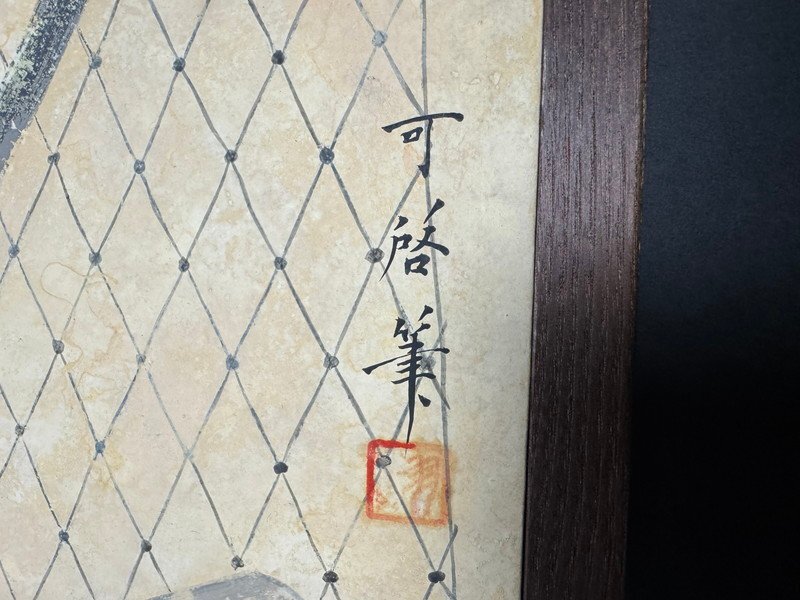 可啓筆